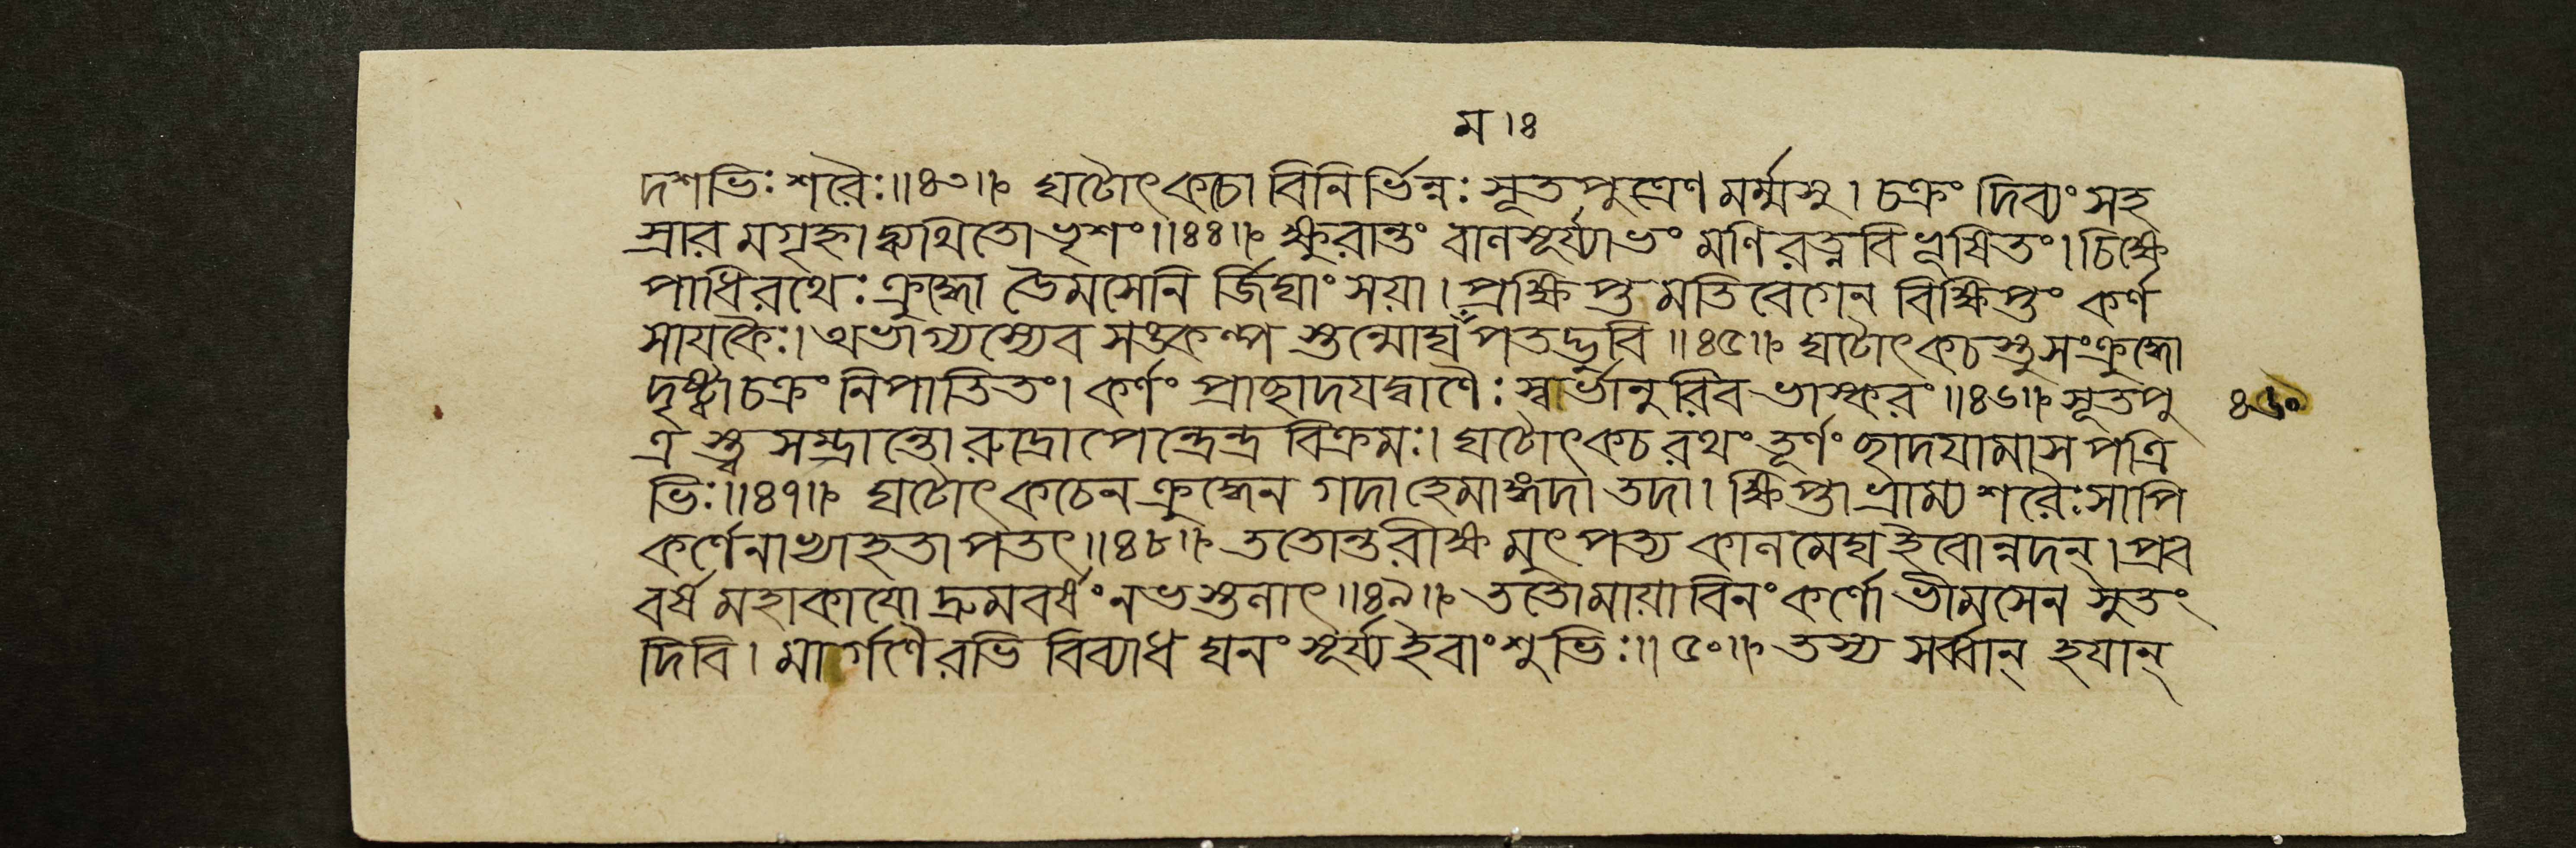 ম । ৪
দশভিঃ শরৈঃ ॥ ৪৩ ॥ ঘটোৎকচো বিনির্ভিন্নঃ সূতপুত্রেণ মর্ম্মসু । চক্রং দিব্যং সহ
স্রার মগৃহ্নাদ্ব্যথিতো ভৃশং ॥ ৪৪ ॥ ক্ষুরান্তং বালসূর্য্যাভং মণিরত্নবিভূষিতং । চিক্ষে
পাধিরথেঃ ক্রুদ্ধো ভৈমসেনি র্জিঘাংসয়া । প্রক্ষিপ্ত মতিবেগেন বিক্ষিপ্তং কর্ণ
সায়কৈঃ । অভাগ্যস্যেব সঙ্কল্প স্তন্মোঘ পতদ্ভুবি ॥ ৪৫ ॥ ঘটোৎকচস্তু সংক্রুদ্ধো
দৃষ্ট্বা চক্রং নিপাতিতং । কর্ণং প্রাচ্ছাদযদ্বাণৈঃ স্বর্ভানুরিব ভাস্করং ॥ ৪৬ ॥ সূতপু
ত্র স্ত্বসম্ভ্রান্তো রুদ্রোপেন্দ্রেন্দ্র বিক্রমঃ । ঘটোৎকচ রথং তূর্ণং ছাদযামাস পত্রি
ভিঃ ॥ ৪৭ ॥ ঘটোৎকচেন ক্রুদ্ধেন গদা হেমাঙ্গদা তদা । ক্ষিপ্তা ভ্রাম্য শরৈঃ সাপি
কর্ণেনাভ্যাহতাপতৎ ॥ ৪৮ ॥ ততোন্তরীক্ষ মুৎপত্য কালমেঘ ইবোন্নদন্ । প্রব
বর্ষ মহাকাযো দ্রুমবর্ষং নভস্তলাৎ ॥ ৪৯ ॥ ততো মায়াবিনং কর্ণো ভীমসেন সুতং
দিবি । মার্গণৈরভি বিব্যাধ ঘনং সূর্য্য ইবাংশুভিঃ ॥ ৫০ ॥ তস্য সর্ব্বান্ হযান্